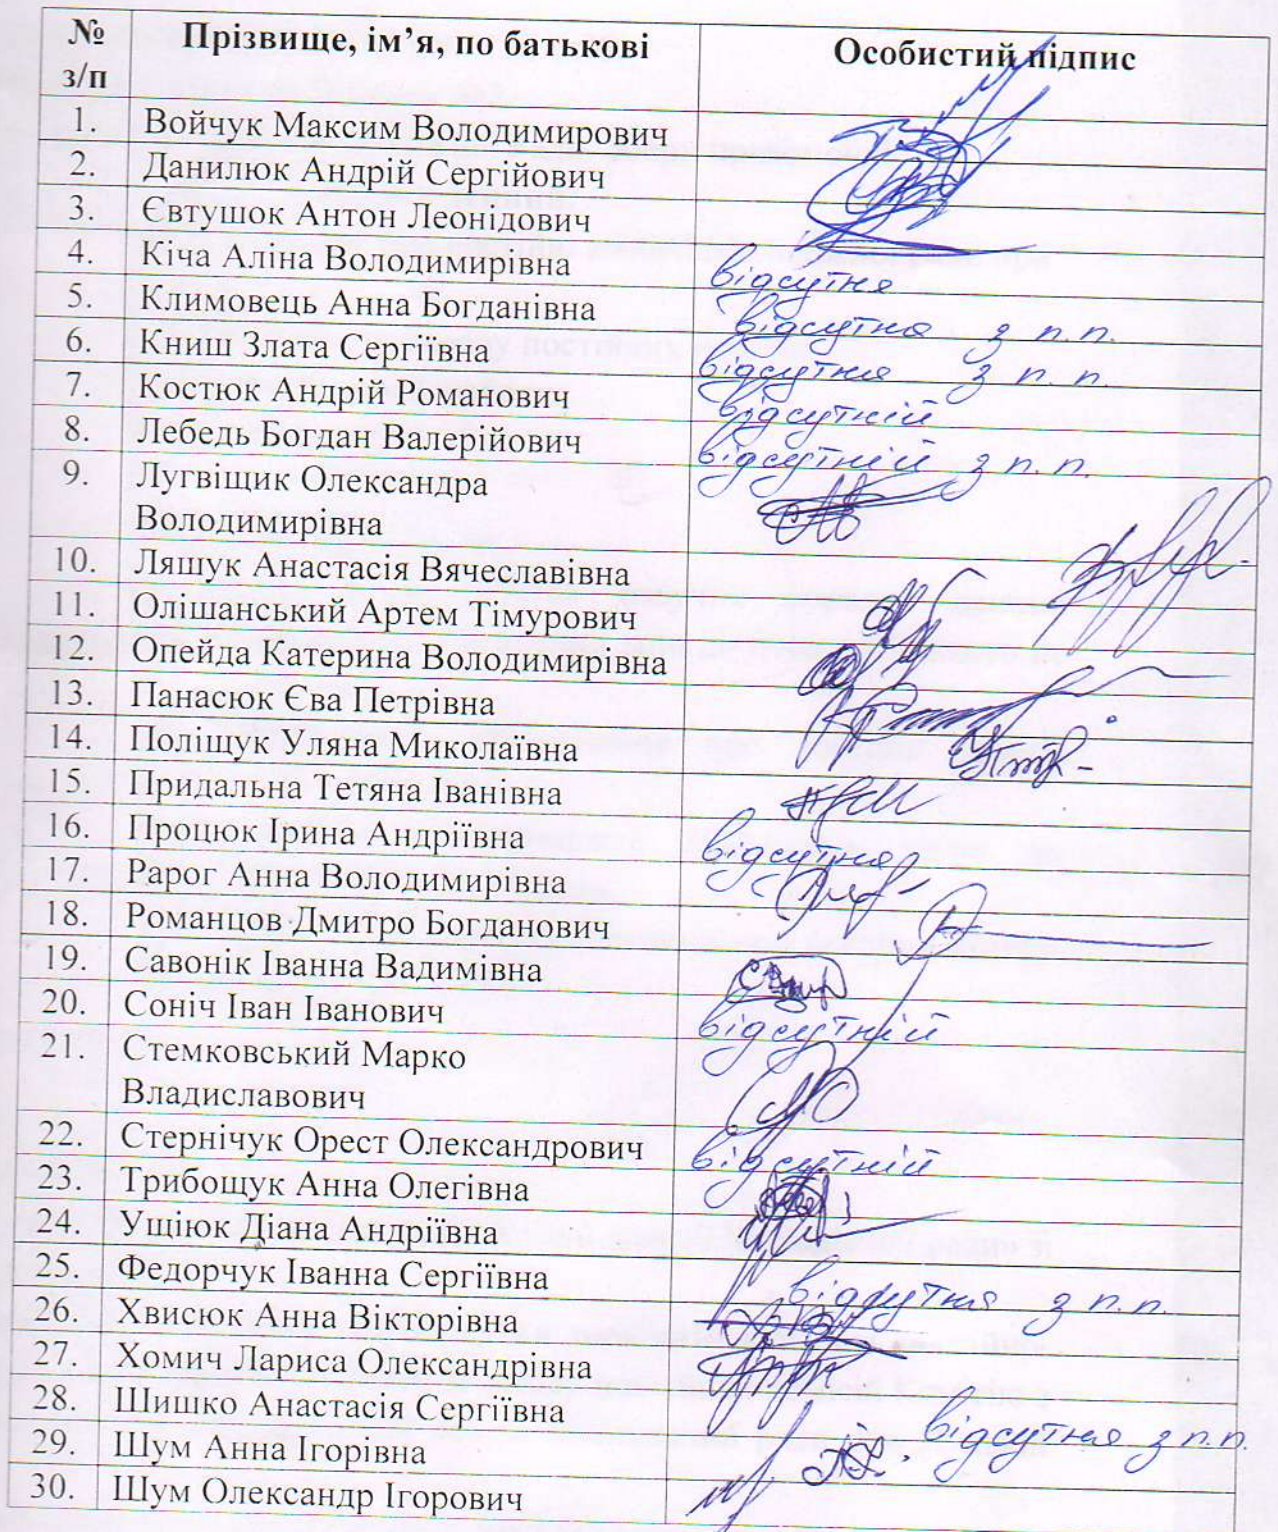 № Прізвище, ім’я, по батькові Особистий підпис
з/п
1. Войчук Максим Володимирович
2. Данилюк Андрій Сергійович
3. Євтушок Антон Леонідович
4. Кіча Аліна Володимирівна відсутня
5. Климовець Анна Богданівна відсутня з п.п.
6. Книш Злата Сергіївна відсутня з п.п.
7. Костюк Андрій Романович відсутній
8. Лебедь Богдан Валерійович відсутній з п.п.
9. Лугвіщик Олександра
Володимирівна
10. Ляшук Анастасія Вячеславівна
11. Олішанський Артем Тімурович
12. Опейда Катерина Володимирівна
13. Панасюк Єва Петрівна
14. Поліщук Уляна Миколаївна
15. Придальна Тетяна Іванівна
16. Процюк Ірина Андріївна відсутня
17. Рарог Анна Володимирівна
18. Романцов Дмитро Богданович
19. Савонік Іванна Вадимівна
20. Соніч Іван Іванович відсутній
21. Стемковський Марко
Владиславович
22. Стернічук Орест Олександрович відсутній
23. Трибощук Анна Олегівна
24. Ущіюк Діана Андріївна
25. Федорчук Іванна Сергіївна відсутня з п.п.
26. Хвисюк Анна Вікторівна
27. Хомич Лариса Олександрівна
28. Шишко Анастасія Сергіївна відсутня з п.п.
29. Шум Анна Ігорівна
30. Шум Олександр Ігорович